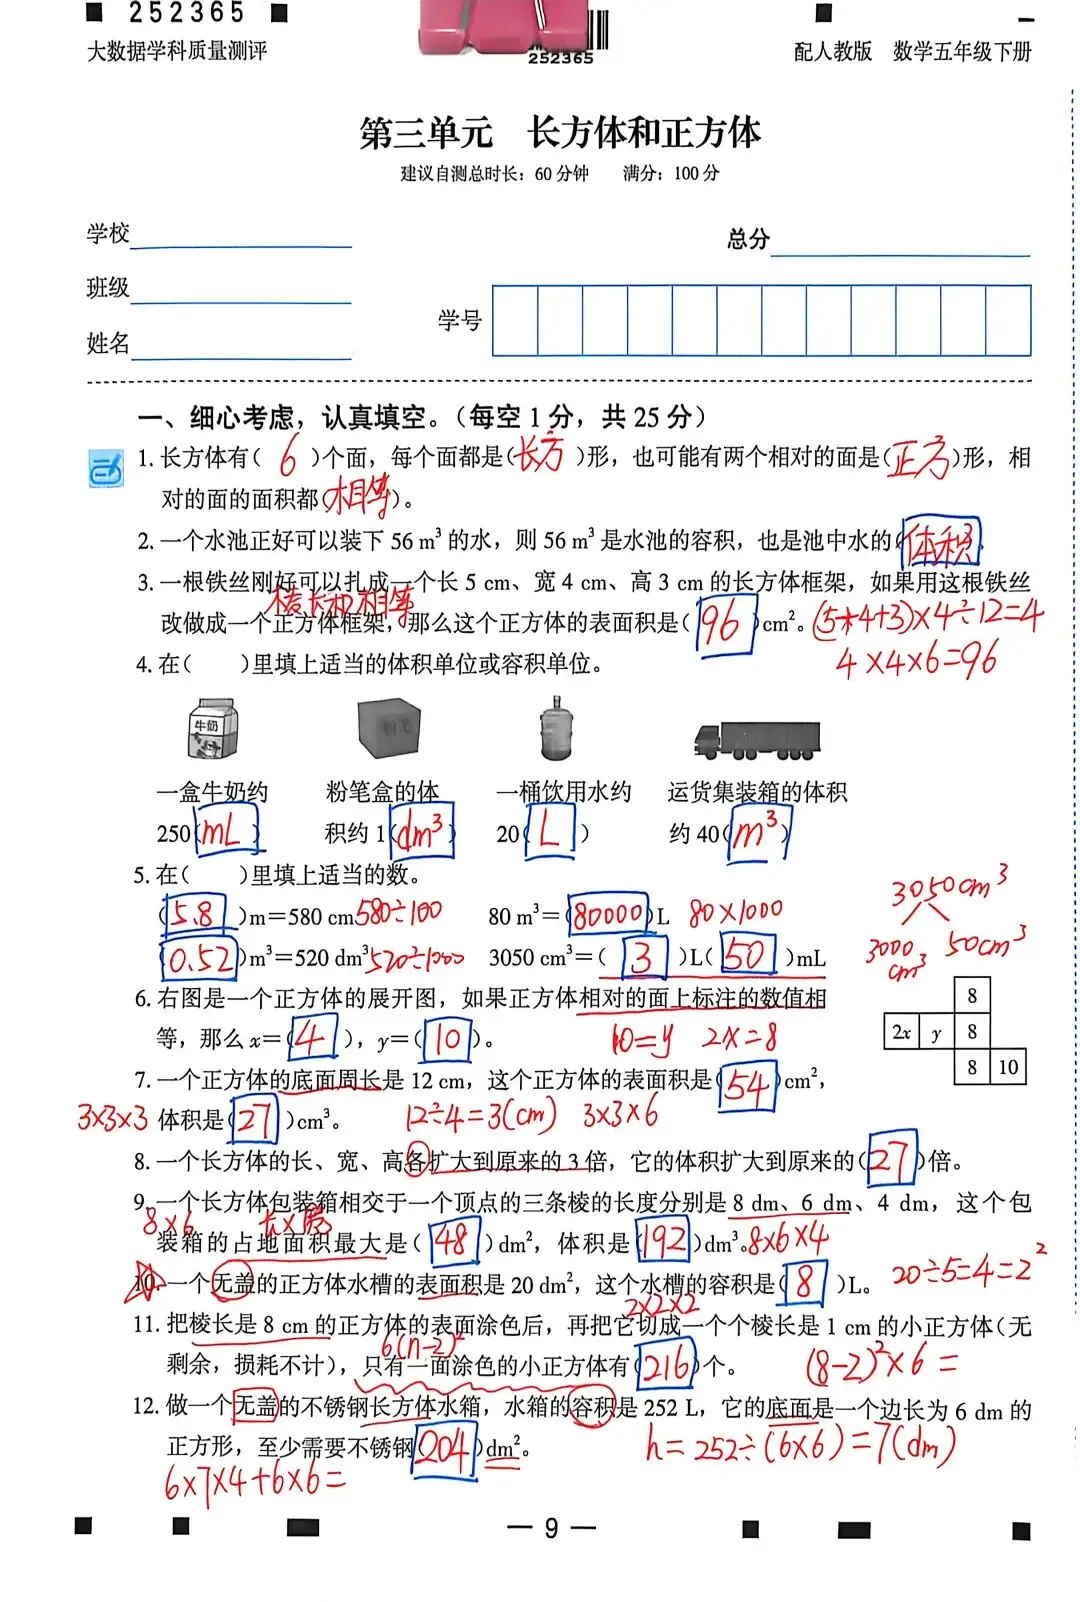 252365
252365
大数据学科质量测评
配人教版 数学五年级下册
第三单元 长方体和正方体
建议自测总时长：60分钟 满分：100分
学校
总分
班级
学号
姓名
一、细心考虑，认真填空。（每空1分，共25分）
1. 长方体有（ 6 ）个面，每个面都是（长方）形，也可能有两个相对的面是（正方）形，相
对的面的面积都（相等）。
2. 一个水池正好可以装下 56 m³ 的水，则 56 m³ 是水池的容积，也是池中水的（体积）
3. 一根铁丝刚好可以扎成一个长 5 cm、宽 4 cm、高 3 cm 的长方体框架，如果用这根铁丝
棱长和相等
改做成一个正方体框架，那么这个正方体的表面积是（ 96 ）cm²。 (5+4+3)×4÷12=4
4×4×6=96
4. 在（ ）里填上适当的体积单位或容积单位。
牛奶
一盒牛奶约 粉笔盒的体 一桶饮用水约 运货集装箱的体积
250（mL） 积约 1（dm³） 20（ L ） 约 40（m³）
5. 在（ ）里填上适当的数。
3050cm³
（5.8）m=580 cm 580÷100 80 m³=（80000）L 80×1000
3000cm³ 50cm³
（0.52）m³=520 dm³ 520÷1000 3050 cm³=（ 3 ）L（ 50 ）mL
6. 右图是一个正方体的展开图，如果正方体相对的面上标注的数值相
等，那么 x=（ 4 ），y=（ 10 ）。 10=y 2x=8
8
2x y 8
8 10
7. 一个正方体的底面周长是 12 cm，这个正方体的表面积是（ 54 ）cm²，
3×3×3 体积是（ 27 ）cm³。 12÷4=3(cm) 3×3×6
8. 一个长方体的长、宽、高各扩大到原来的 3 倍，它的体积扩大到原来的（ 27 ）倍。
9. 一个长方体包装箱相交于一个顶点的三条棱的长度分别是 8 dm、6 dm、4 dm，这个包
8×6 长×宽
装箱的占地面积最大是（ 48 ）dm²，体积是（192）dm³。 8×6×4
10. 一个无盖的正方体水槽的表面积是 20 dm²，这个水槽的容积是（ 8 ）L。 20÷5=4=2²
2×2×2
11. 把棱长是 8 cm 的正方体的表面涂色后，再把它切成一个个棱长是 1 cm 的小正方体（无
6(n-2)²
剩余，损耗不计），只有一面涂色的小正方体有（216）个。 (8-2)²×6=
12. 做一个无盖的不锈钢长方体水箱，水箱的容积是 252 L，它的底面是一个边长为 6 dm 的
正方形，至少需要不锈钢（204）dm²。 h=252÷(6×6)=7(dm)
6×7×4+6×6=
— 9 —